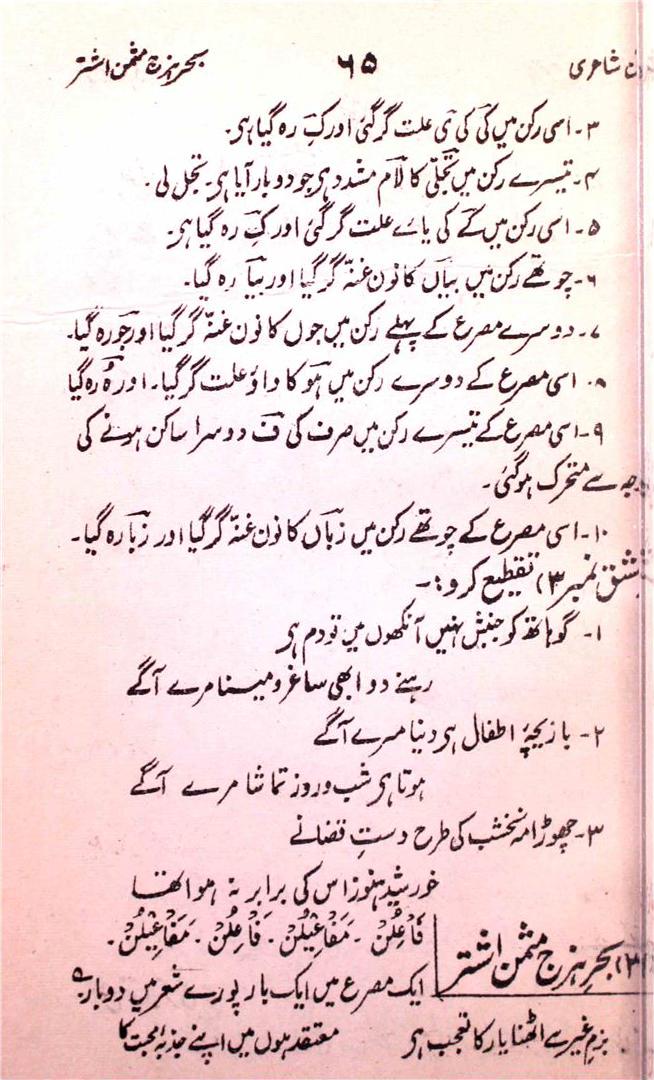 شاعری ۶۵ بحر ہزج مثمن اشتر
۳۔ اسی رکن میں گی کی ی علت گر گئی اور کِ رہ گیا ہی۔
۴۔ تیسرے رکن میں تجلّی کا لام مشدد ہی جو دوبار آیا ہی۔ تجل لی۔
۵۔ اسی رکن میں کے کی یاے علت گر گئی اور کِ رہ گیا ہی۔
۶۔ چوتھے رکن میں بیاں کا نون غنہ گر گیا اور بیا رہ گیا۔
۷۔ دوسرے مصرع کے پہلے رکن میں جوں کا نون غنہ گر گیا اور جو رہ گیا۔
۸۔ اسی مصرع کے دوسرے رکن میں ہو کا واؤ علت گر گیا۔ اور ہُ رہ گیا
۹۔ اسی مصرع کے تیسرے رکن میں صرف کی ف دوسرا ساکن ہونے کی
وجہ سے متحرک ہو گئی۔
۱۰۔ اسی مصرع کے چوتھے رکن میں زباں کا نون غنہ گر گیا اور زبا رہ گیا۔
مشق نمبر ۳) تقطیع کرو:۔
۱۔ گو ہاتھ کو جنبش نہیں آنکھوں میں تو دم ہی
رہنے دو ابھی ساغر و مینا مرے آگے
۲۔ بازیچۂ اطفال ہی دنیا مرے آگے
ہوتا ہی شب و روز تماشا مرے آگے
۳۔ چھوڑا مہ نخشب کی طرح دستِ قضا نے
خورشید ہنوز اس کی برابر نہ ہوا تھا
(۳) بحرِ ہزج مثمن اشتر
فَاعِلُنْ۔ مَفَاعِیْلُنْ۔ فَاعِلُنْ۔ مَفَاعِیْلُنْ۔
ایک مصرع میں ایک بار پورے شعر میں دوبار۔
بزمِ غیر سے اٹھنا یار کا تعجب ہی معتقد ہوں میں اپنے جذبۂ محبت کا